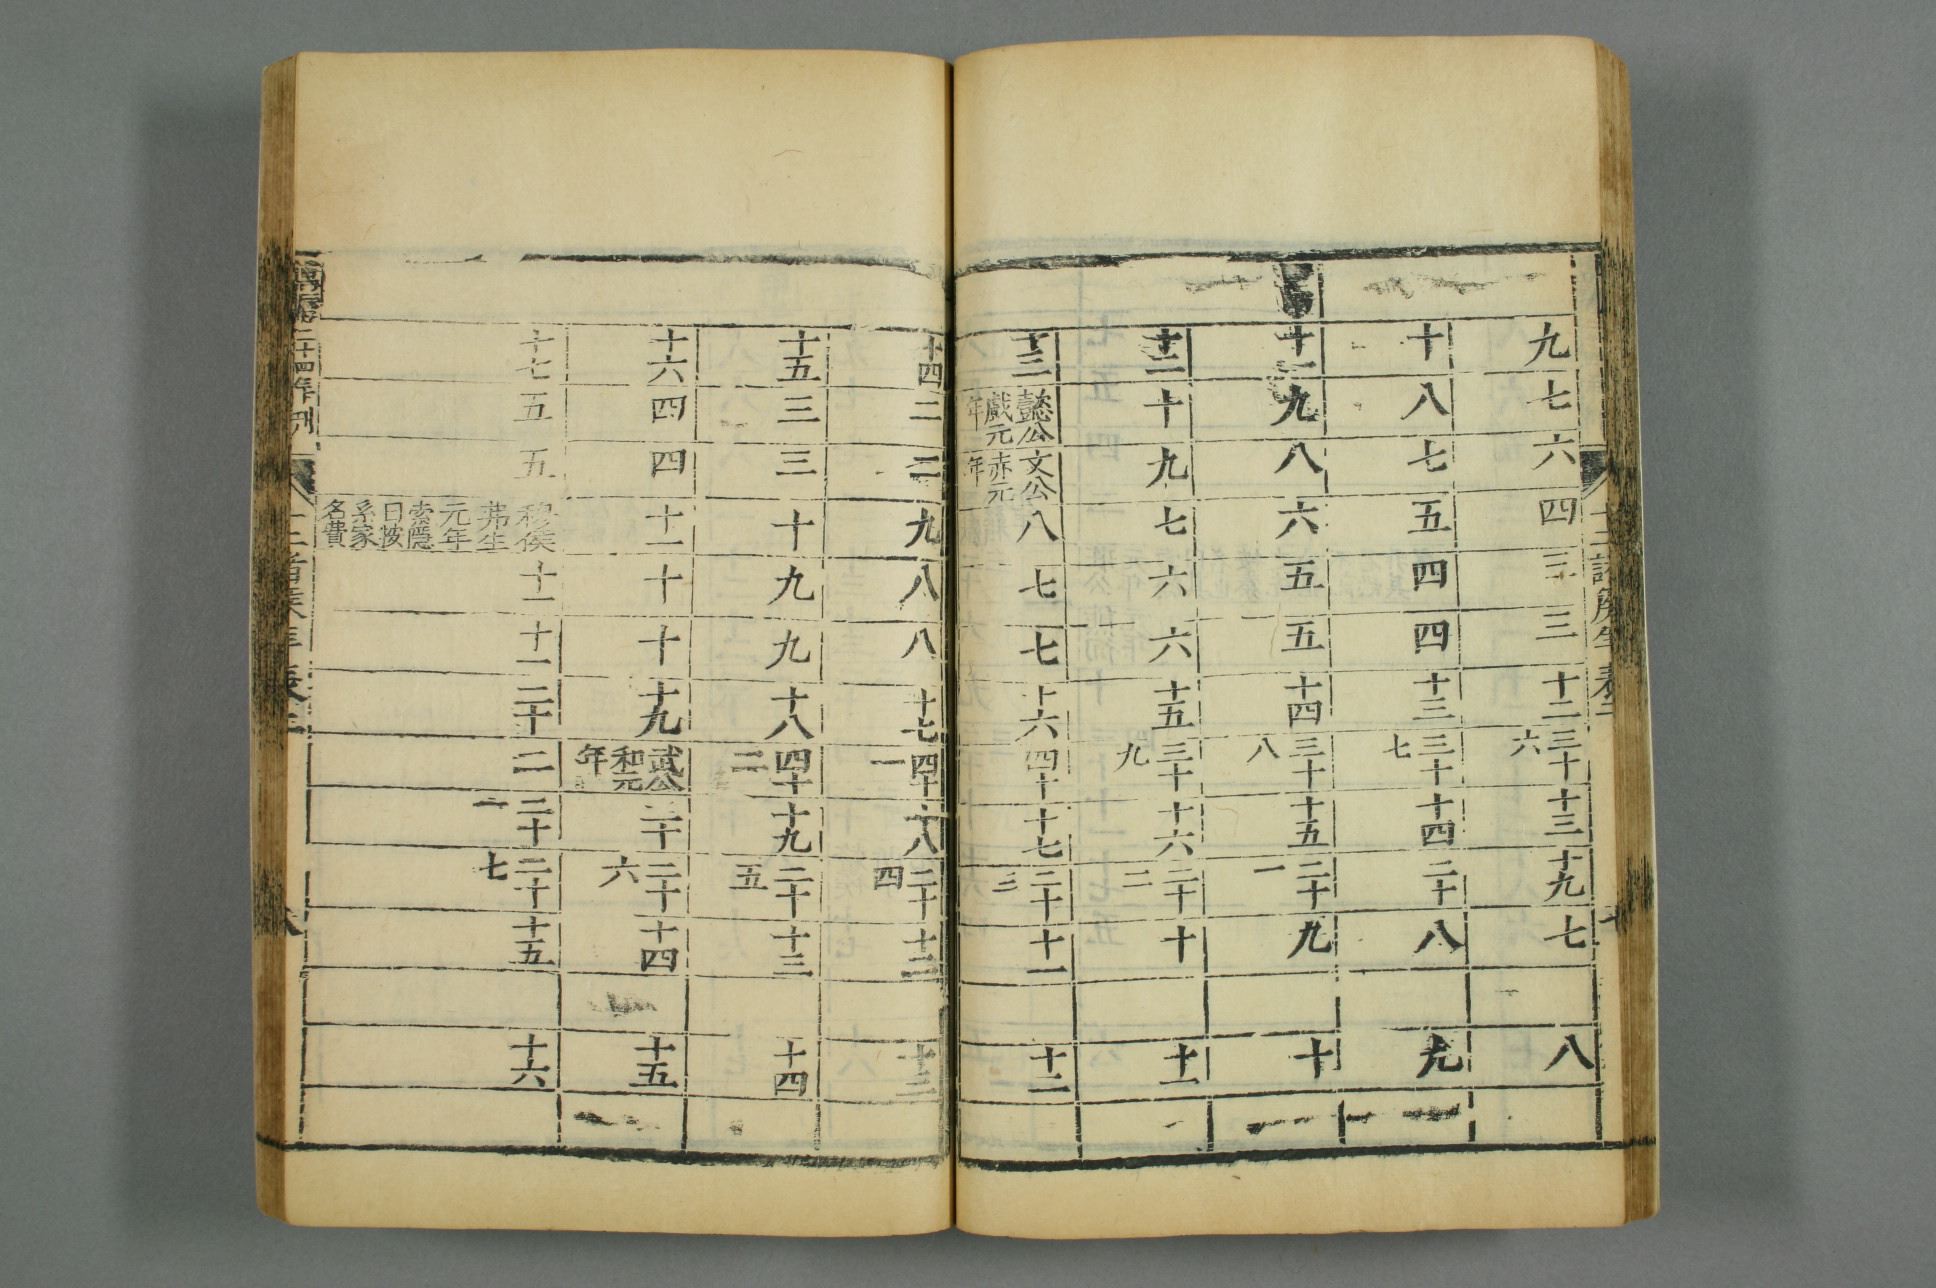 十二諸侯年表二
九 七 六 四 三 三 十二 三十六 十三 十九 七 八
十 八 七 五 四 四 十三 三十七 十四 二十 八 九
十一 九 八 六 五 五 十四 三十八 十五 二十一 九 十
十二 十 九 七 六 六 十五 三十九 十六 二十二 十 十一
十三 懿公戲元年 文公赤元年 八 七 七 十六 四十 十七 二十三 十一 十二
十四 二 二 九 八 八 十七 四十一 十八 二十四 十二 十三
十五 三 三 十 九 九 十八 四十二 十九 二十五 十三 十四
十六 四 四 十一 十 十 十九 武公和元年 二十 二十六 十四 十五
十七 五 五 穆侯弗生元年索隱曰按系家名費 十一 十一 二十 二 二十一 二十七 十五 十六
萬曆二十四年刊 十二諸侯年表二 八